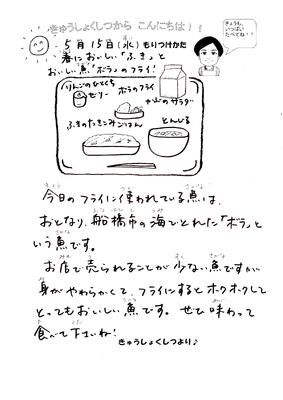 きゅうしょくしつから こんにちは!!
きょうも、
いっぱい
たべてね!!
5月15日(水) もりつけかた
春においしい「ふき」と
おいしい魚「ボラ」のフライ!
りんごのひとくち
ゼリー
ボラのフライ
サラダ
ふきのたきこみごはん
とんじる
今日のフライに使われている魚は、
おとなり、船橋市の海でとれた「ボラ」と
いう魚です。
お店で売られることが少ない魚ですが
身がやわらかくて、フライにするとホクホクして
とってもおいしい魚です。ぜひ味わって
食べて下さいね!
きゅうしょくしつより♪